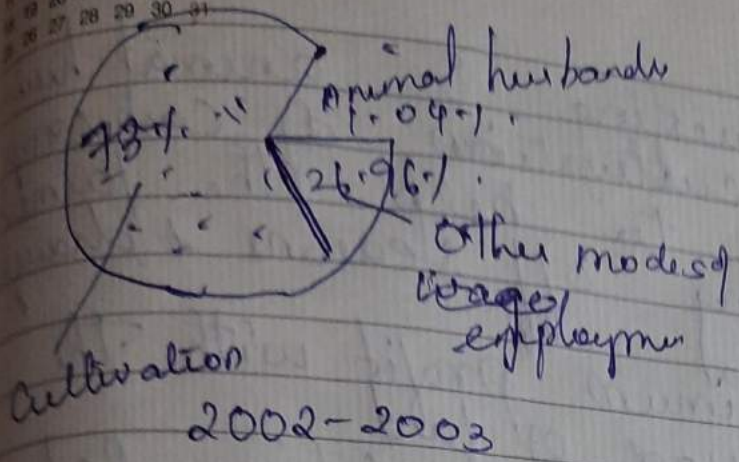 28 29 30 31
26 27
73%
Animal husbandu
1.04%.
26.96%.
Other modes of
wage/
employme
Cultivation
2002-2003